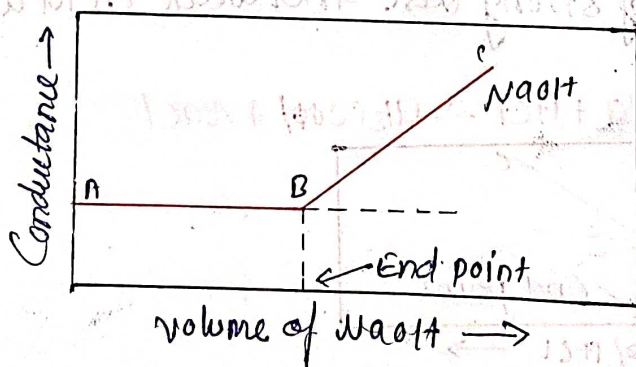 Conductance →
A
B
C
NaOH
End point
volume of NaOH →